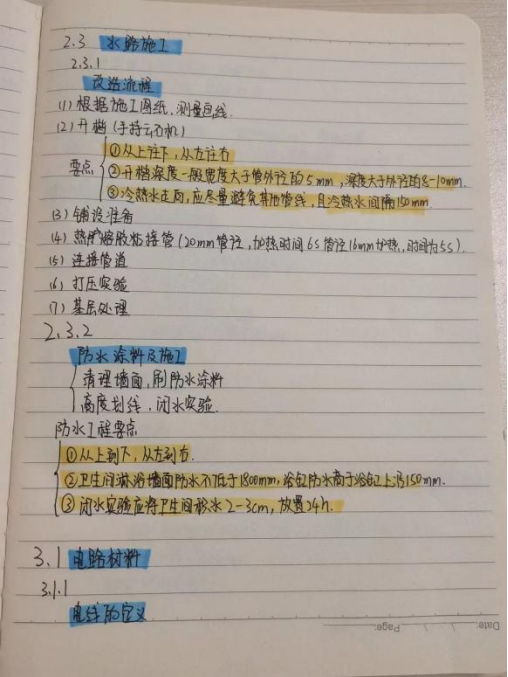 2.3 水路施工
2.3.1
改造流程
(1) 根据施工图纸,测量画线.
(2) 开槽 (手持云石机)
①从上往下,从左往右
要点 ②开槽深度一般宽度大于管外径的5mm,深度大于外径的8-10mm.
③冷热水走向,应尽量避免其他管线,且冷热水间隔150mm.
(3) 铺设准备
(4) 热熔胶粘接管(20mm管径,加热时间6S 管径16mm加热,时间为5S).
(5) 连接管道
(6) 打压实验
(7) 基层处理
2.3.2
防水涂料及施工
清理墙面,刷防水涂料
高度划线,闭水实验.
防水工程要点
①从上到下,从左到右.
②卫生间淋浴墙面防水不低于1800mm,浴缸防水高于浴缸上沿150mm.
③闭水实验应将卫生间积水2-3cm,放置24h.
3.1 电路材料
3.1.1
电线的定义
Date: / / Page: